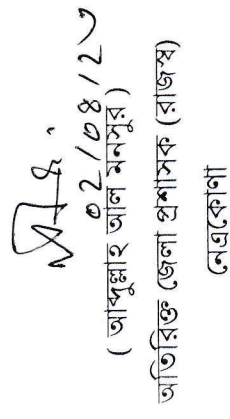 ০২/০৪/২৩
( আব্দুল্লাহ আল মনসুর )
অতিরিক্ত জেলা প্রশাসক (রাজস্ব)
নেত্রকোণা